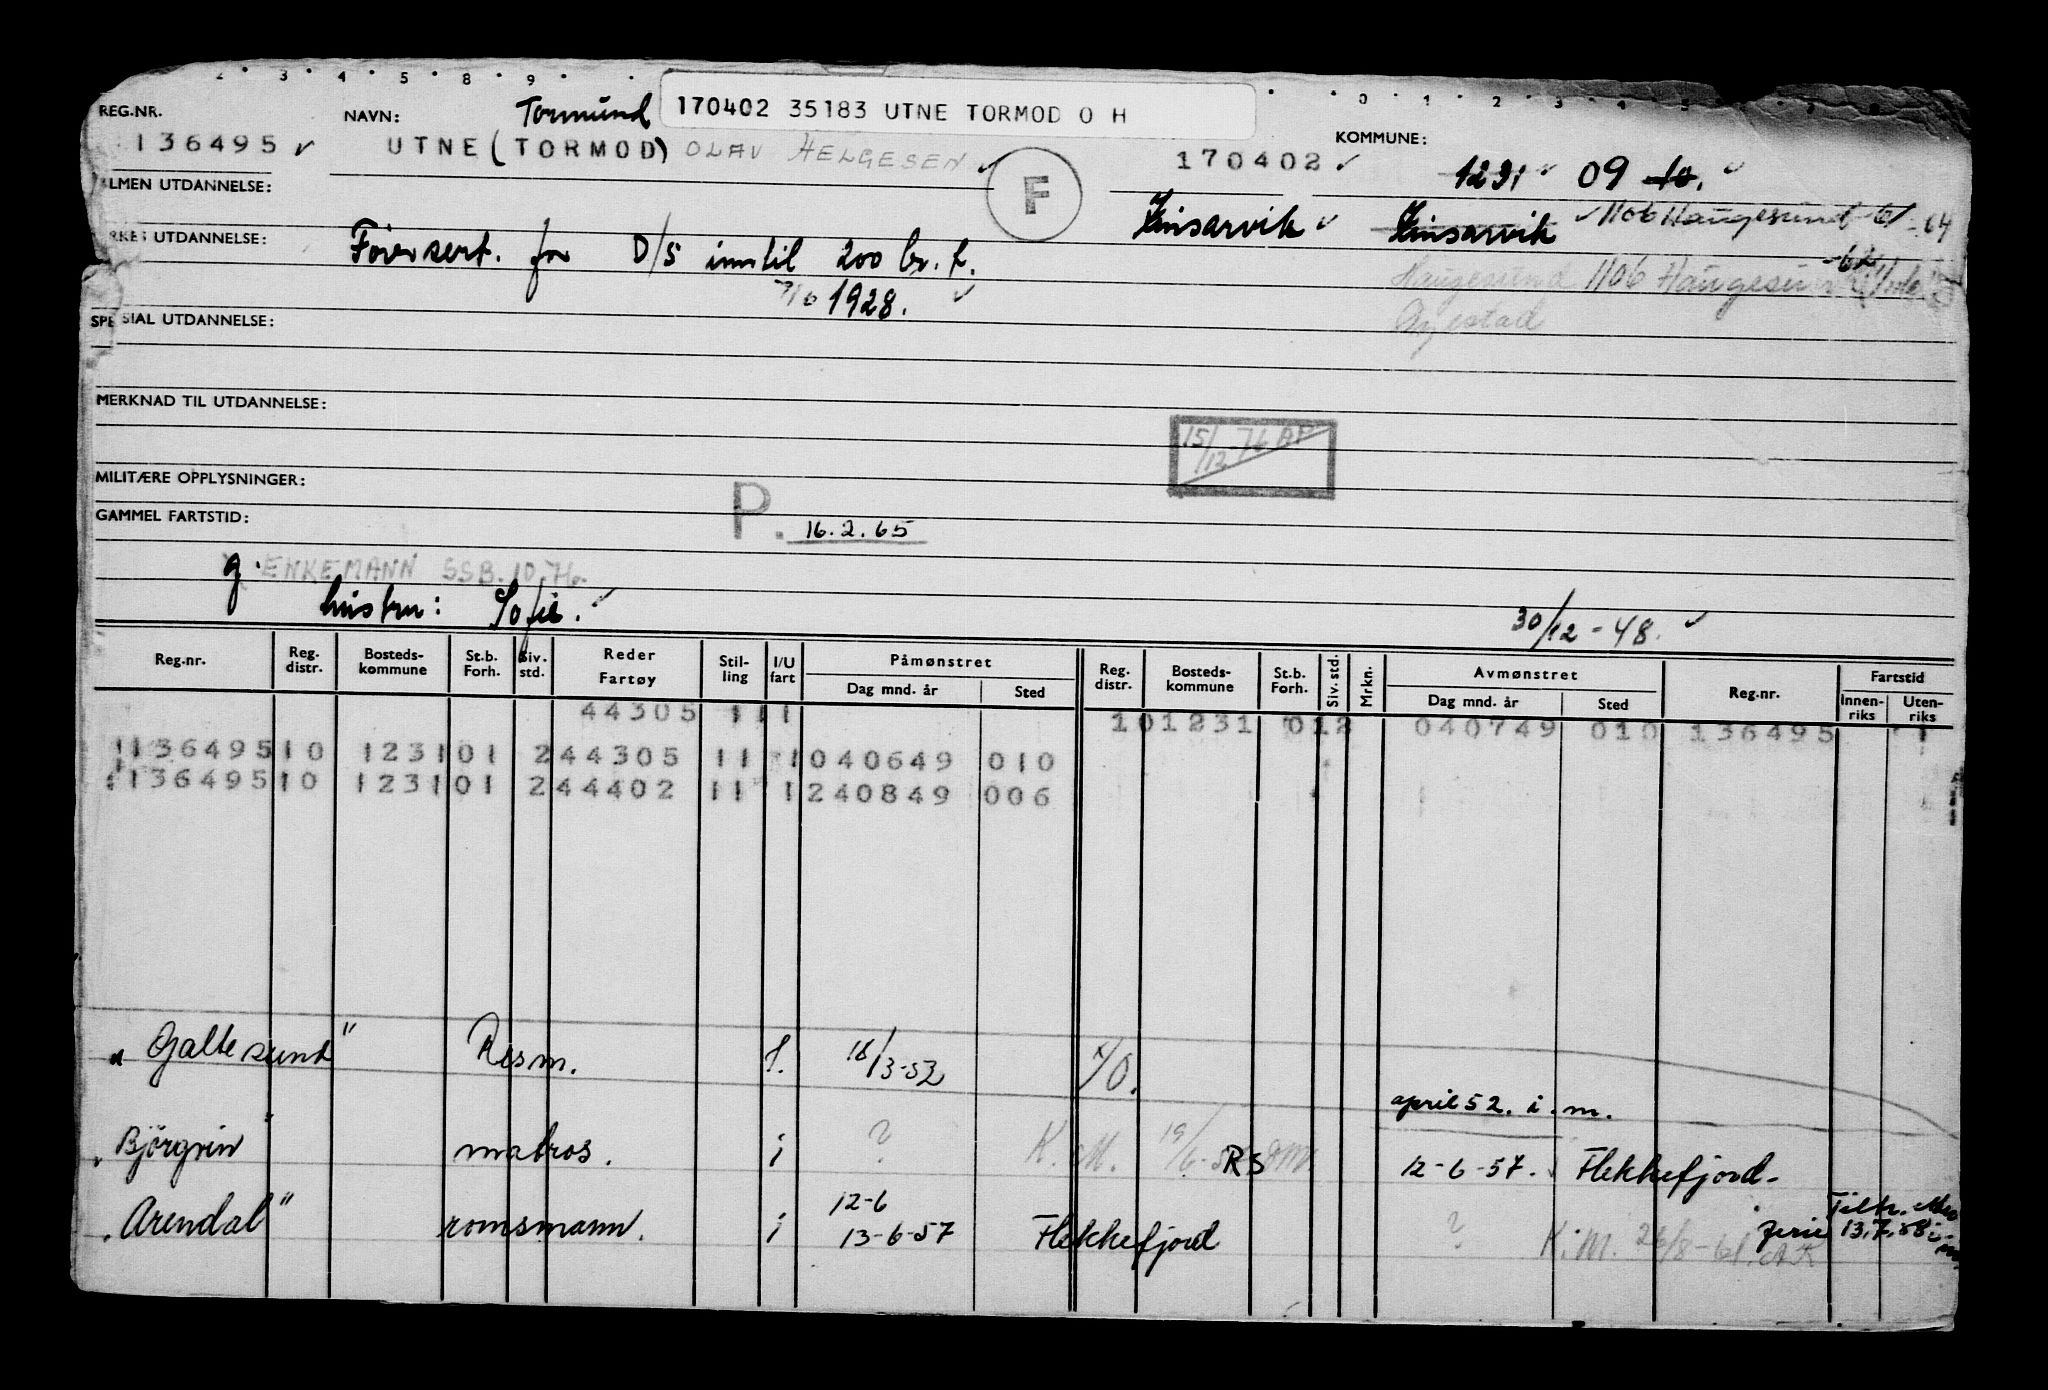 2 · 3 · 4 · 5 · 8 · 9
REG.NR.
136495
NAVN:
Tormund
170402 35183 UTNE TORMOD O H
UTNE (TORMOD) OLAV HELGESEN
F
170402
KOMMUNE:
1231 09 10.
ALMEN UTDANNELSE:
Kinsarvik
Kinsarvik 1106 Haugesund -64
YRKES UTDANNELSE:
Förersert. for D/S inntil 200 br. t.
7/6 1928.
Haugesund 1106 Haugesund
SPESIAL UTDANNELSE:
MERKNAD TIL UTDANNELSE:
15/12 76
MILITÆRE OPPLYSNINGER:
GAMMEL FARTSTID:
P. 16.2.65
g. ENKEMANN SSB. 10.76.
hustru: Sofie.
30/12-48.
Reg.nr. Reg. distr. Bosteds-kommune St.b. Forh. Siv. std. Reder Fartøy Stil-ling I/U fart Påmønstret Dag mnd. år Sted Reg. distr. Bosteds-kommune St.b. Forh. Siv. std. Mrkn. Avmønstret Dag mnd. år Sted Reg.nr. Fartstid Innen-riks Uten-riks
44305 111
101231 012 040749 010 136495 1
113649510 123101 244305 11 1040649 010
113649510 123101 244402 11 1240849 006
"Galtesund" Resm. f. 18/3-52
april 52. i.m.
"Björgvin" matros. i ? K.M. 19/6 RS 12-6-57. Flekkefjord-
"Arendal" romsmann. i 12-6
13-6-57 Flekkefjord ? K.M. 26/8-61. ferie 13.7.58